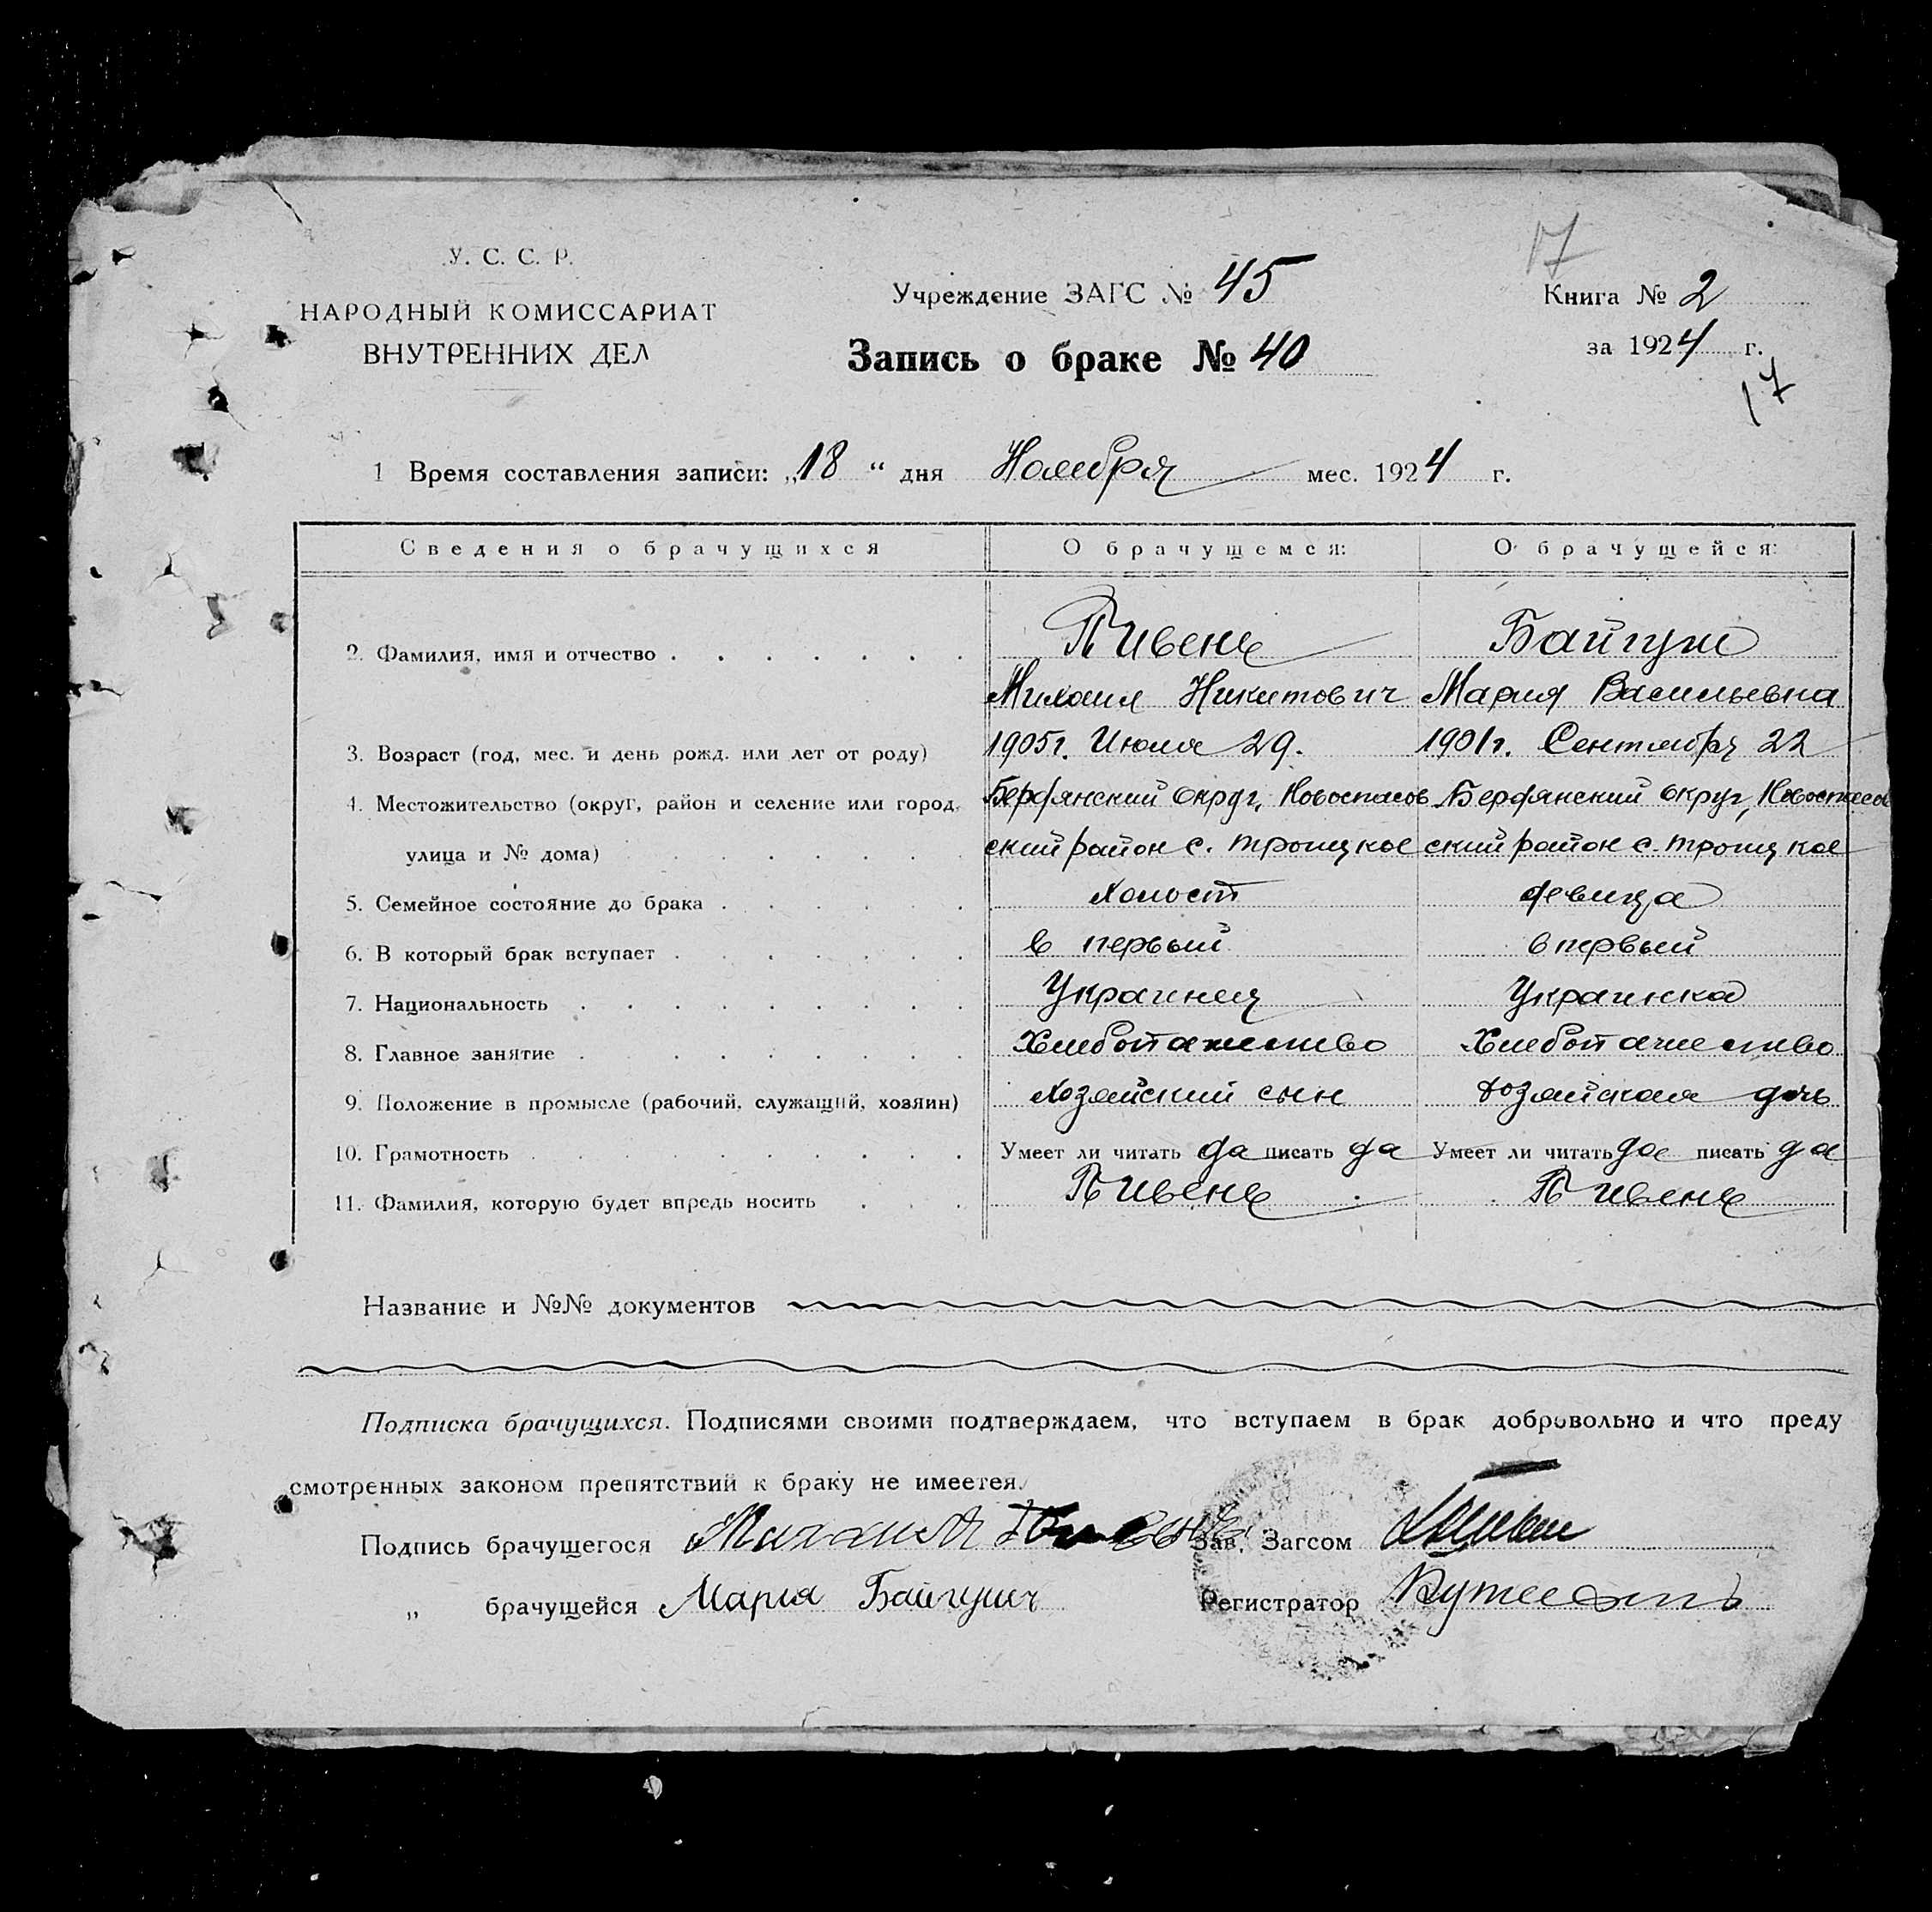 17
У. С. С. Р.
НАРОДНЫЙ КОМИССАРИАТ
ВНУТРЕННИХ ДЕЛ
Учреждение ЗАГС № 45
Запись о браке № 40
Книга № 2
за 1924 г.
17
1 Время составления записи: „18 “ дня Ноября мес. 1924 г.
Сведения о брачущихся О брачущемся: О брачущейся:
2. Фамилия, имя и отчество Пивень Байгуш
Михаил Никитович Мария Васильевна
3. Возраст (год, мес. и день рожд. или лет от роду) 1905г. Июля 29. 1901г. Сентября 22
4. Местожительство (округ, район и селение или город, Бердянский округ, Новоспасов Бердянский округ, Новоспасов
улица и № дома) ский район с. Троицкое ский район с. Троицкое
5. Семейное состояние до брака холост девица
6. В который брак вступает в первый в первый
7. Национальность Украинец Украинка
8. Главное занятие Хлебопашество Хлебопашество
9. Положение в промысле (рабочий, служащий, хозяин) хозяйский сын хозяйская дочь
10. Грамотность Умеет ли читать да писать да Умеет ли читать да писать да
11. Фамилия, которую будет впредь носить Пивень Пивень
Название и №№ документов
Подписка брачущихся. Подписями своими подтверждаем, что вступаем в брак добровольно и что преду
смотренных законом препятствий к браку не имеетея.
Подпись брачущегося Михаил Пивень Зав. Загсом
„ брачущейся Мария Байгуш Регистратор